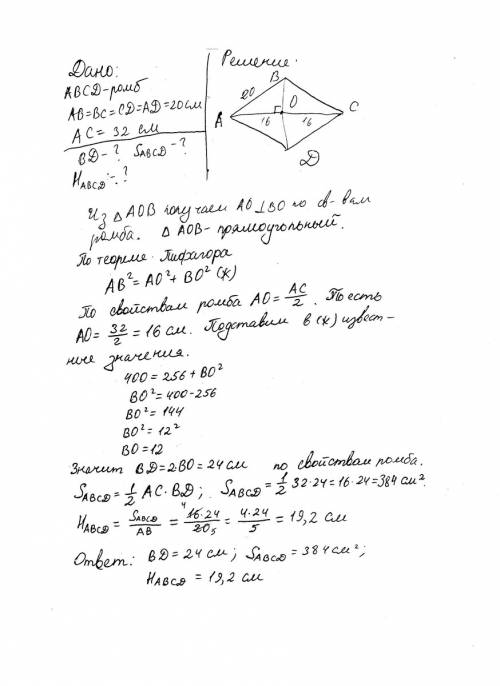 Дано:
ABCD-ромб
AB=BC=CD=AD=20см
AC=32 см
BD-? SABCD-?
HABCD-?
Решение:
B
20
O
A
16
16
C
D
Из △AOB получаем AO⊥BO по св-вам
ромба. △AOB-прямоугольный.
По теореме Пифагора
AB²=AO²+BO² (*)
По свойствам ромба AO=AC/2. То есть
AO=32/2=16 см. Подставим в (*) извест-
ные значения.
400=256+BO²
BO²=400-256
BO²=144
BO²=12²
BO=12
Значит BD=2·BO=24см по свойствам ромба.
SABCD=1/2 AC·BD; SABCD=1/2 32·24=16·24=384 см².
HABCD=SABCD/AB=⁴16·24/20₅=4·24/5=19,2 см
Ответ: BD=24 см; SABCD=384см²;
HABCD=19,2 см